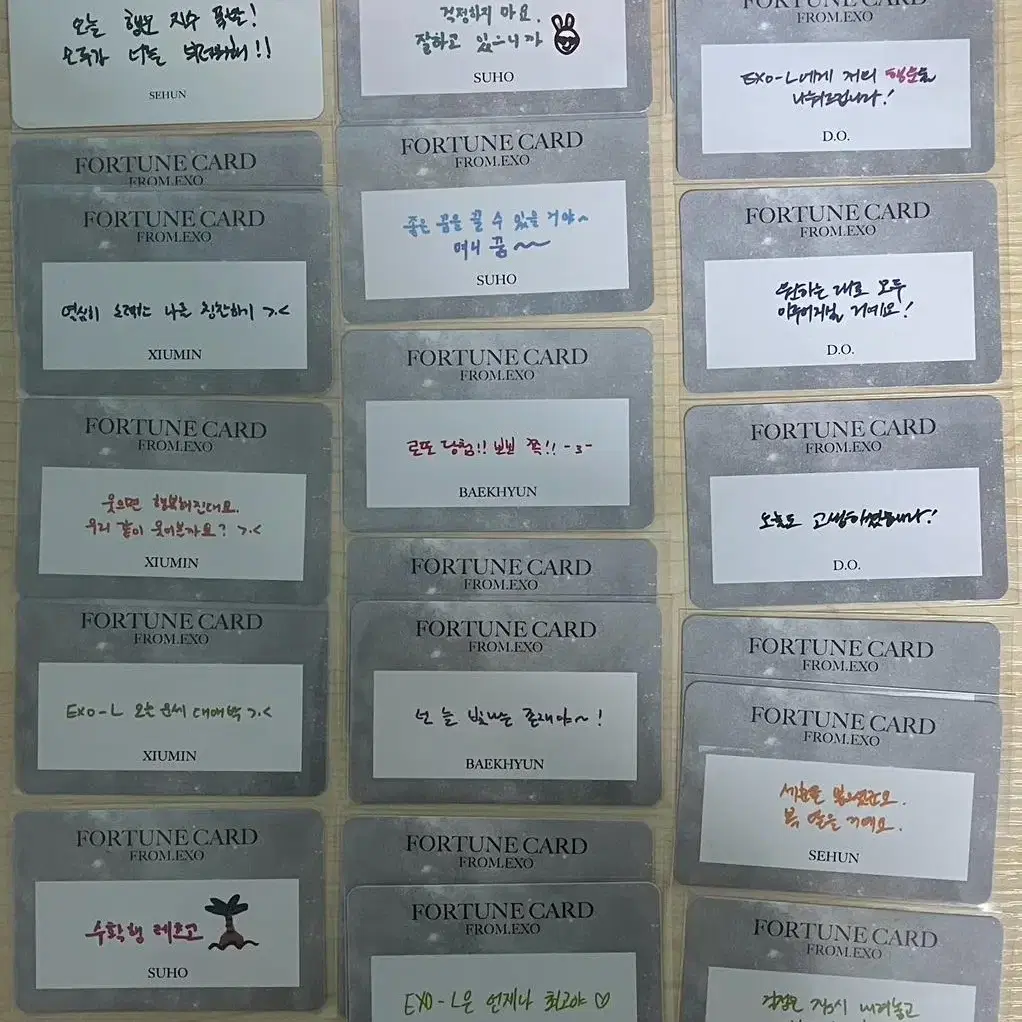 오늘 행운 지수 폭발!
오루가 너를 !!
SEHUN
FORTUNE CARD
FROM.EXO
FORTUNE CARD
FROM.EXO
열심히 노력하는 나를 칭찬하기 >.<
XIUMIN
FORTUNE CARD
FROM.EXO
웃으면 행복해진대요.
우리 같이 웃어볼까요? >.<
XIUMIN
FORTUNE CARD
FROM.EXO
EXO-L 오늘 운세 대애박 >.<
XIUMIN
FORTUNE CARD
FROM.EXO
수학행 레츠고
SUHO
걱정하지 마요.
잘하고 있으니까
SUHO
FORTUNE CARD
FROM.EXO
좋은 꿈을 꿀 수 있을 거야~
며니 꿈~~
SUHO
FORTUNE CARD
FROM.EXO
로또 당첨!! 뽀뽀 쪽!! -3-
BAEKHYUN
FORTUNE CARD
FROM.EXO
FORTUNE CARD
FROM.EXO
넌 늘 빛나는 존재야~!
BAEKHYUN
FORTUNE CARD
FROM.EXO
FORTUNE CARD
FROM.EXO
EXO-L은 언제나 최고야 ♡
FORTUNE CARD
EXO-L에게 저의 행운을
나눠드립니다!
D.O.
FORTUNE CARD
FROM.EXO
원하는 대로 모두
이루어지실 거예요!
D.O.
FORTUNE CARD
FROM.EXO
오늘도 고생하셨습니다!
D.O.
FORTUNE CARD
FROM.EXO
FORTUNE CARD
FROM.EXO
세훈을 뽑으셨군요.
복 받을 거예요.
SEHUN
FORTUNE CARD
FROM.EXO
걱정은 잠시 내려놓고